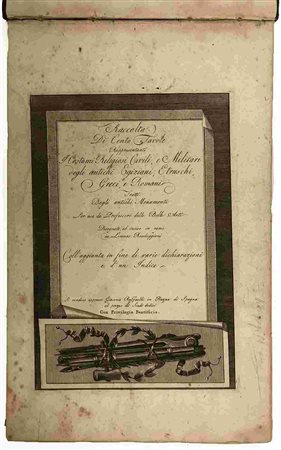 Raccolta
Di Cento Tavole
Rappresentanti
I Costumi Religiosi Civili, e Militari
degli antichi Egiziani Etruschi,
Greci e Romani
Tratti
Dagli antichi Monumenti
Per uso de' Professori delle Belle Arti
Disegnate ed incise in rame
da Lorenzo Roccheggiani
Coll'aggiunta in fine di varie dichiarazioni
e d'un Indice
Si vendono appresso Raffaelli in Piazza di Spagna
Con Privilegio Pontificio.